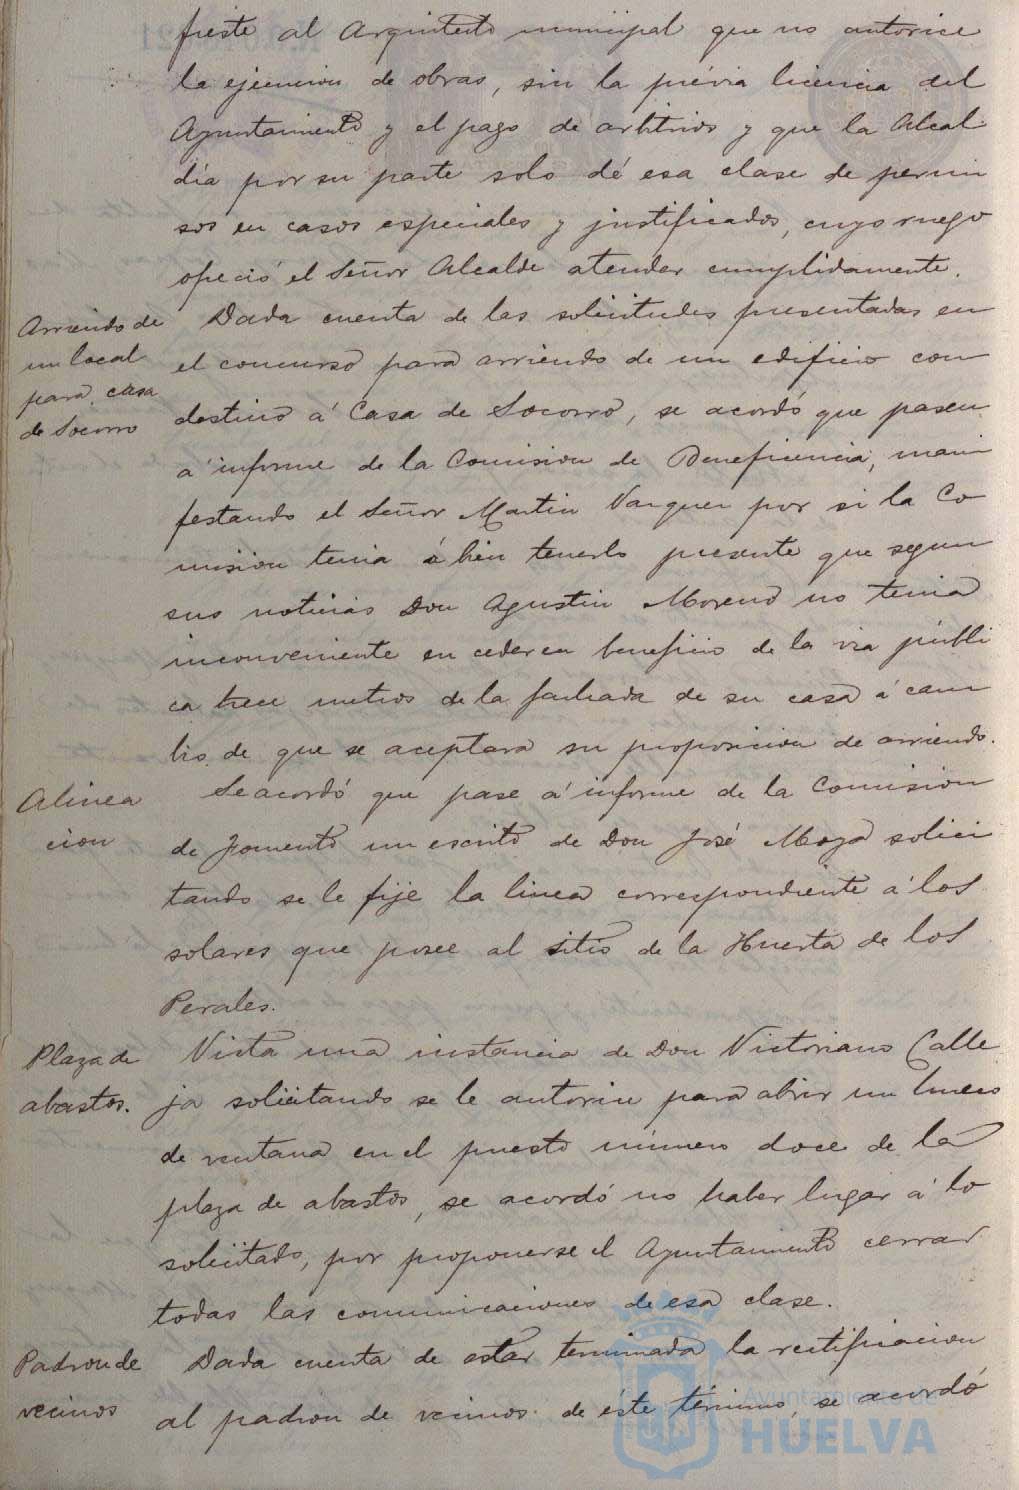 fieste al Arquitecto municipal que no autorice
la ejecucion de obras, sin la prévia licencia del
Ayuntamiento y el pago de arbitrios y que la Alcal
día por su parte solo dé esa clase de permi
sos en casos especiales y justificados, cuyo ruego
ofreció el Señor Alcalde atender cumplidamente.
Arriendo de
un local
para casa
de Socorro
Dada cuenta de las solicitudes presentadas en
el concurso para arriendo de un edificio con
destino á Casa de Socorro, se acordó que pasen
á informe de la Comision de Beneficencia, mani
festando el Señor Martin Vazquez por si la Co
mision tenia á bien tenerlo presente que segun
sus noticias Don Agustin Moreno no tenia
inconveniente en ceder en beneficio de la via públi
ca trece metros de la fachada de su casa á cam
bio de que se aceptara su proposicion de arriendo.
Alinea
cion
Se acordó que pase á informe de la Comision
de Fomento un escrito de Don José Moza solici
tando se le fije la linea correspondiente á los
solares que posee al sitio de la Huerta de los
Perales.
Plaza de
abastos.
Vista una instancia de Don Victoriano Calle
ja solicitando se le autorice para abrir un hueco
de ventana en el puesto número doce de la
plaza de abastos, se acordó no haber lugar á lo
solicitado, por proponerse el Ayuntamiento cerrar
todas las comunicaciones de esa clase.
Padron de
vecinos
Dada cuenta de estar terminada la rectificacion
al padron de vecinos de éste término, se acordó
Ayuntamiento de
HUELVA